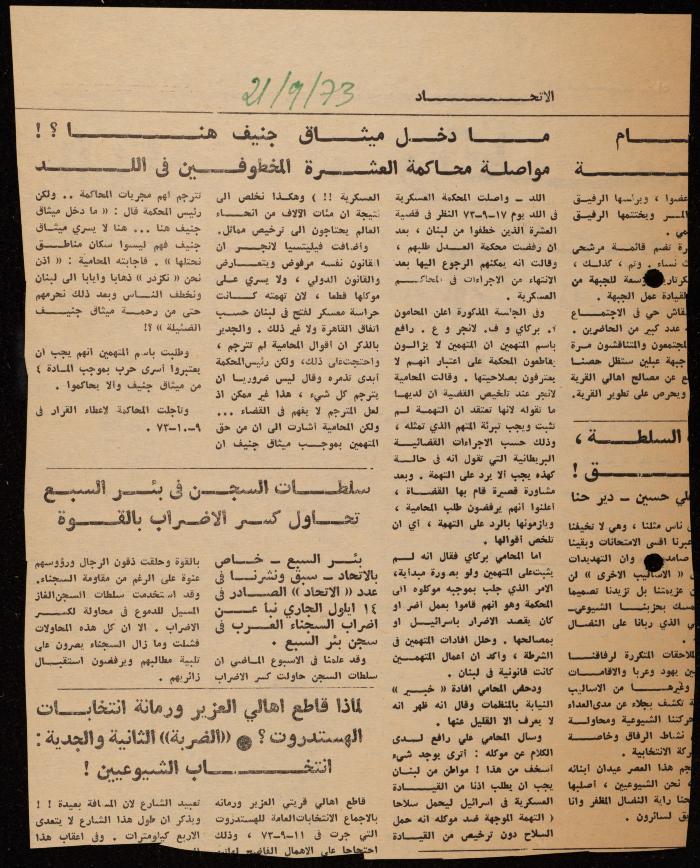 21/9/73
الاتحــــــاد
مــا دخــل ميثــاق جنيف هنــــا ؟ !
مواصلة محاكمة العشــرة المخطوفــين فى اللــد
اللد ــ واصلت المحكمة العسكرية
فى اللد يوم ١٧-٩-٧٣ النظر فى قضية
العشرة الذين خطفوا من لبنان ، بعد
ان رفضت محكمة العدل طلبهم ،
وقالت انه يمكنهم الرجوع اليها بعد
الانتهاء من الاجراءات فى المحاكم
العسكرية .
وفى الجلسة المذكورة اعلن المحامون
؟. بركاي و ف. لانجر و ع . رافع
باسم المتهمين ان المتهمين لا يزالون
يقاطعون المحكمة على اعتبار انهم لا
يعترفون بصلاحيتها . وقالت المحامية
لانجر عند تلخيص القضية ان لديها
ما تقوله لانها تعتقد ان التهمة لم
تثبت ويجب تبرئة المتهم الذي تمثله ،
وذلك حسب الاجراءات القضائية
البريطانية التي تقول انه فى حالة
كهذه يجب ألا يرد على التهمة . وبعد
مشاورة قصيرة قام بها القضاة ،
اعلنوا انهم يرفضون طلب المحامية ،
ويلزمونها بالرد على التهمة ، أي ان
تلخص أقوالها .
اما المحامي بركاي فقال انه لم
يثبت على المتهمين ولو بصورة مبدأية،
الامر الذي جلب بموجبه موكلوه الى
المحكمة وهو انهم قاموا بعمل أضر او
كان يقصد الاضرار باسرائيل او
بمصالحها . وحلل افادات المتهمين فى
الشرطة ، وأكد ان أعمال المتهمين
كانت قانونية فى لبنان .
ودحض المحامي افادة « خبير »
النيابة بالمنظمات وقال انه ظهر انه
لا يعرف الا القليل عنها .
وسأل المحامي علي رافع لدى
الكلام عن موكله : أترى يوجد شيء
أسخف من هذا ! مواطن من لبنان
يجب ان يطلب اذنا من القيادة
العسكرية فى اسرائيل ليحمل سلاحا
( التهمة الموجهة ضد موكله انه حمل
السلاح دون ترخيص من القيادة
العسكرية !! ) وهكذا نخلص الى
نتيجة ان مئات الآلاف من انحاء
العالم يحتاجون الى ترخيص مماثل.
وأضافت فيليتسيا لانجر ان
القانون نفسه مرفوض ويتعارض
والقانون الدولي ، ولا يسري على
موكلها قطعا ، لان تهمته كانت
حراسة معسكر لفتح فى لبنان حسب
اتفاق القاهرة ولا غير ذلك . والجدير
بالذكر ان أقوال المحامية لم تترجم ،
واحتجت على ذلك، ولكن رئيس المحكمة
أبدى تذمره وقال ليس ضروريا ان
يترجم كل شيء ، هذا غير ممكن اذ
لعل المترجم لا يفهم فى القضاء ...
ولكن المحامية أشارت الى ان من حق
المتهمين بموجب ميثاق جنيف ان
تترجم لهم مجريات المحاكمة .. ولكن
رئيس المحكمة قال : « ما دخل ميثاق
جنيف هنا ... هنا لا يسري ميثاق
جنيف فهم ليسوا سكان مناطق
نحتلها » . فأجابته المحامية : « اذن
نحن « نكزدر » ذهابا وايابا الى لبنان
ونخطف الناس وبعد ذلك نحرمهم
حتى من رحمة ميثاق جنيف
الضئيلة » ؟!
وطلبت باسم المتهمين انهم يجب ان
يعتبروا أسرى حرب بموجب المادة ٤
من ميثاق جنيف وألا يحاكموا .
وتأجلت المحاكمة لاعطاء القرار فى
٩-١٠-٧٣ .
سلطــات السجــن فى بئــر السبع
تحــاول كسر الاضــراب بالقــوة
بئــر السبع ــ خــاص
بالاتحاد ــ سبق ونشرنا فى
عدد « الاتحاد » الصادر فى
١٤ ايلول الجاري نبأ عن
اضراب السجناء العرب فى
سجن بئر السبع .
وقد علمنا فى الاسبوع الماضي ان
سلطات السجن حاولت كسر الاضراب
بالقوة وحلقت ذقون الرجال ورؤوسهم
عنوة على الرغم من مقاومة السجناء.
وقد استخدمت سلطات السجن الغاز
المسيل للدموع فى محاولة لكسر
الاضراب . الا ان كل هذه المحاولات
فشلت وما زال السجناء يصرون على
تلبية مطالبهم ويرفضون استقبال
زائريهم .
لماذا قاطع اهالي العزير ورمانة انتخابــات
الهستدروت ؟ ● ((الضربة)) الثانية والجدية :
انتخــــاب الشيوعيين !
قاطع أهالي قريتي العزير ورمانه
بالاجماع الانتخابات العامة للهستدروت
التي جرت فى ١١-٩-٧٣ ، وذلك
احتجاجا على الاهمال الفاضح لعا
تعبيد الشارع لان المسافة بعيدة ! !
ويذكر ان طول هذا الشارع لا يتعدى
الاربع كيلومترات . وفى أعقاب هذا
ــام
ــة
عضوا ، ويرأسها الرفيق
ويختتمها الرفيق
ة تضم قائمة مرشحي
نساء . وتم ، كذلك ،
وسعة للجبهة من
لقيادة عمل الجبهة .
نقاش حي فى الاجتماع
عدد كبير من الحاضرين .
لمجتمعون والمتناقشون مرة
جبهة عبلين ستظل حصنا
ع عن مصالح اهالي القرية
ويحرص على تطوير القرية .
السلطــة ،
ــق !
لي حسين ــ دير حنا
ناس مثلنا ، وهي لا تخيفنا
عبرنا أقسى الامتحانات وبقينا
صامد وان التهديدات
« الاساليب الاخرى » لن
عزيمتنا بل تزيدنا تصميما
سك بحزبنا الشيوعي
ي الذي ربانا على النضال
لاحقات المتكررة لرفاقنا
ين يهود وعربا والاقامات
وغيرها من الاساليب
تكشف بجلاء عن مدى العداء
حركتنا الشيوعية ومحاولة
نشاط الرفاق وخاصة
كة الانتخابية .
جم هذا العصر عيدان أبنائه
نحن الشيوعيين ، أصلبها
نا راية النضال المظفر وانا
ق لسائرون .